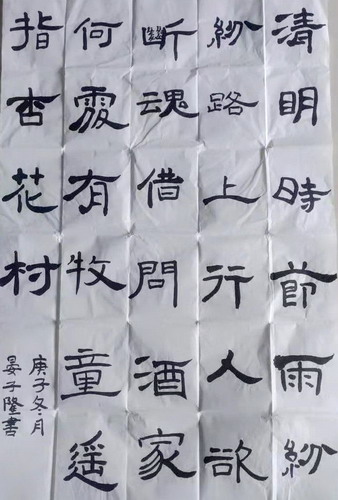 清明時節雨紛
紛路上行人欲
斷魂借問酒家
何處有牧童遥
指杏花村
庚子冬月
晏子隆書